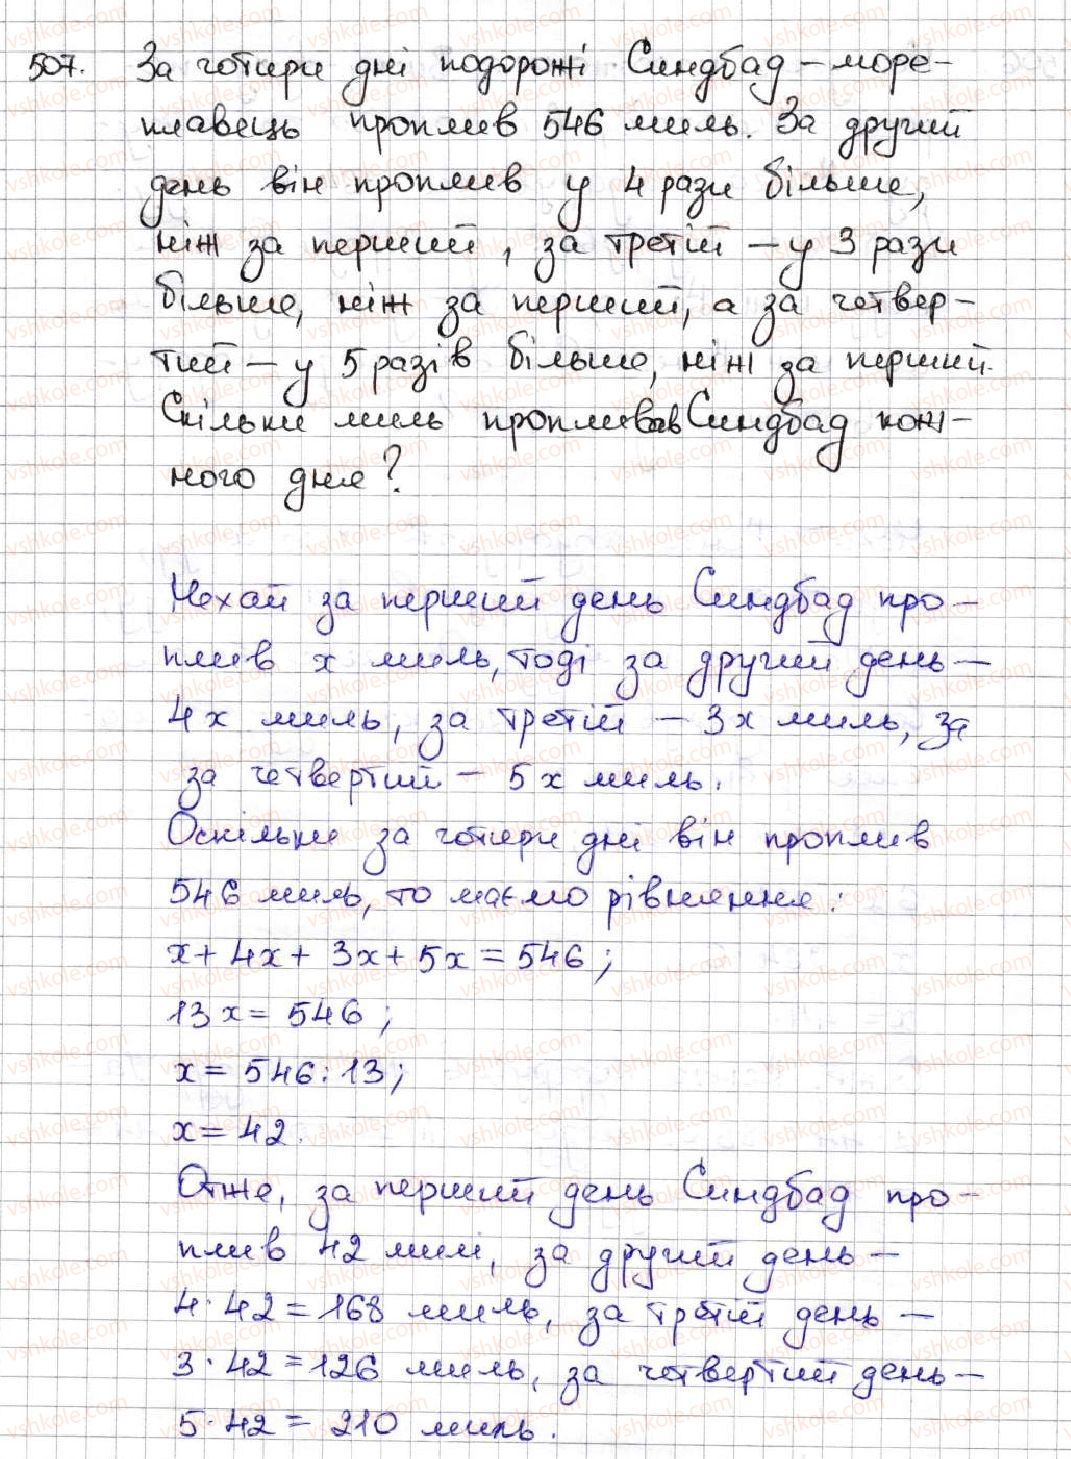 507. За чотири дні подорожі Синдбад-море-
плавець проплив 546 миль. За другий
день він проплив у 4 рази більше,
ніж за перший, за третій – у 3 рази
більше, ніж за перший, а за четвер-
тий – у 5 разів більше, ніж за перший.
Скільки миль пропливав Синдбад кож-
ного дня?
Нехай за перший день Синдбад про-
плив x миль, тоді за другий день –
4x миль, за третій – 3x миль, за
за четвертий – 5x миль.
Оскільки за чотири дні він проплив
546 миль, то маємо рівняння:
x + 4x + 3x + 5x = 546;
13x = 546;
x = 546 : 13;
x = 42.
Отже, за перший день Синдбад про-
плив 42 милі, за другий день –
4 · 42 = 168 миль, за третій день –
3 · 42 = 126 миль, за четвертий день –
5 · 42 = 210 миль.